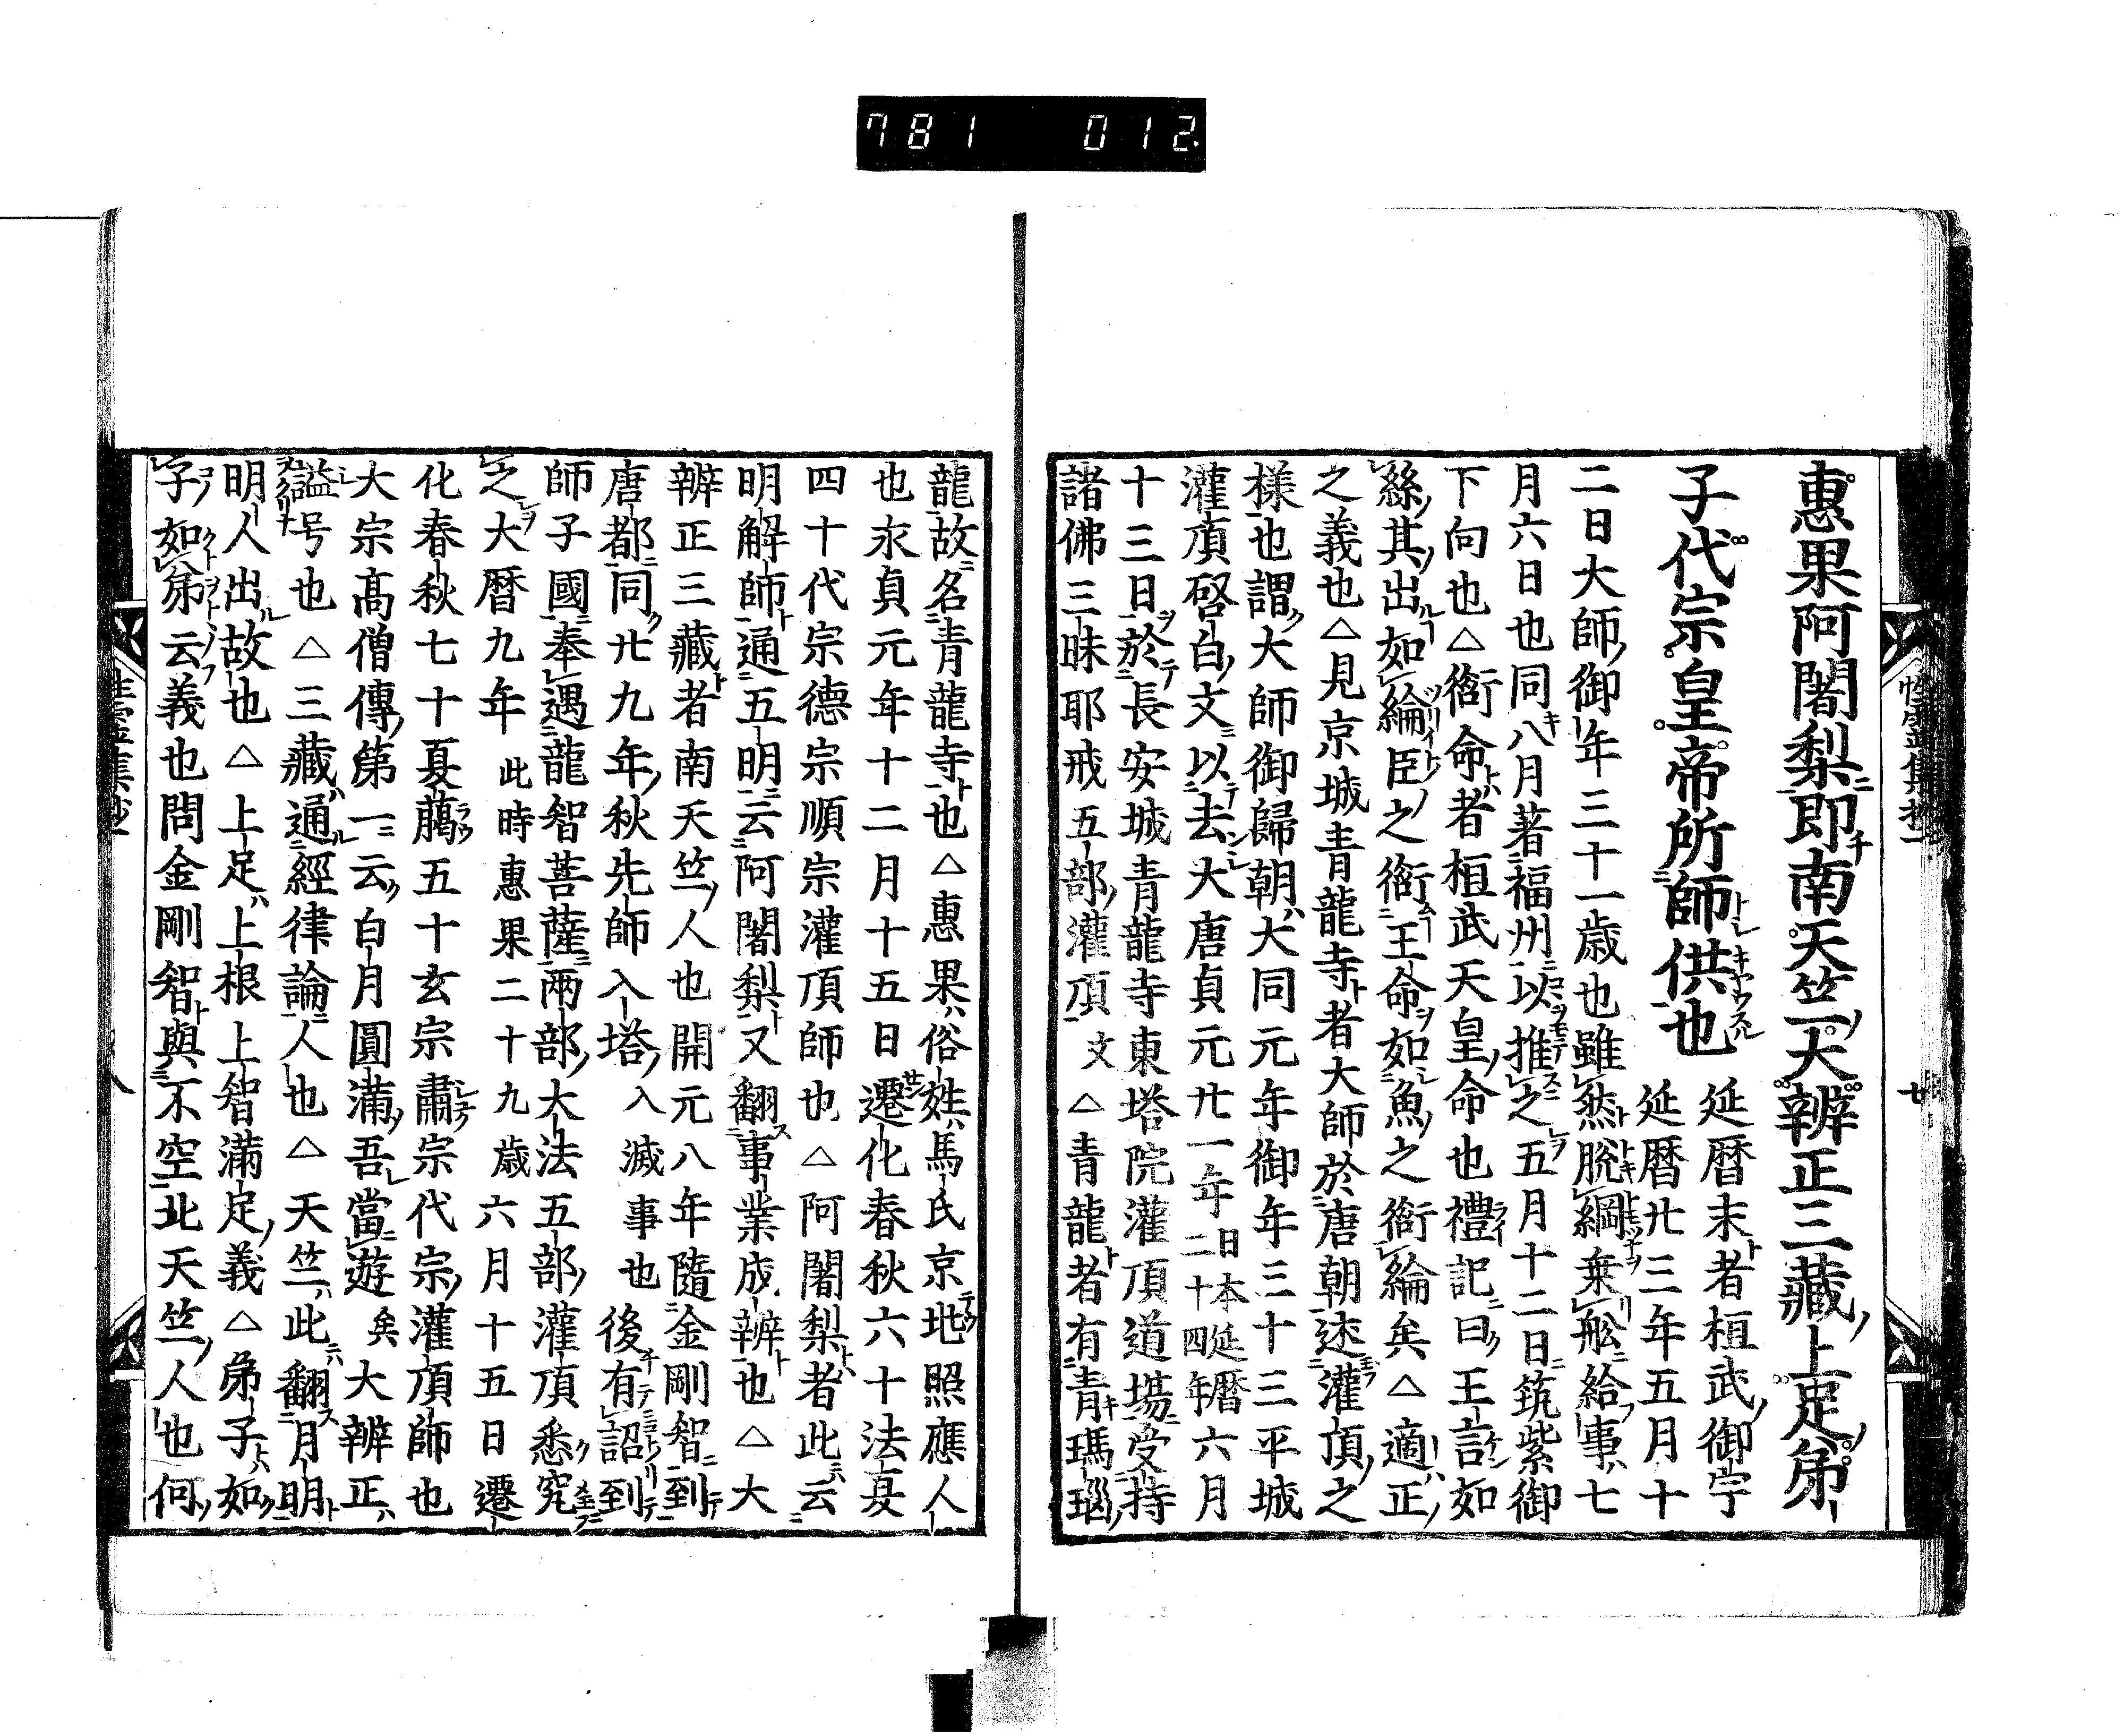 781 012
惠果阿闍梨即南天竺大辨正三藏上足弟
子代宗皇帝所師供也
延暦末者桓武御宇
延暦廿三年五月十
二日大師御年三十一歳也雖然脱綱乗舩給事七
月六日也同八月著福州以推之五月十二日筑紫御
下向也△銜命者桓武天皇命也禮記曰王言如
絲其出如綸臣之銜王命如魚之銜綸矣△適正
之義也△見京城青龍寺者大師於唐朝逑灌頂之
様也謂大師御歸朝大同元年御年三十三平城
灌頂啓白文以去大唐貞元廿一年日本延暦二十四年六月
十三日於長安城青龍寺東塔院灌頂道場受持
諸佛三昧耶戒五部灌頂文△青龍者有青瑪瑙
龍故名青龍寺也△惠果俗姓馬氏京地照應人
也永貞元年十二月十五日遷化春秋六十法夏
四十代宗德宗順宗灌頂師也△阿闍梨者此云
明解師通五明云阿闍梨又翻事業成辨也△大
辨正三藏者南天竺人也開元八年隨金剛智到
唐都同廿九年秋先師入塔入滅事也後有詔到
師子國奉遇龍智菩薩兩部大法五部灌頂悉究
之大暦九年此時惠果二十九歳六月十五日遷
化春秋七十夏﨟五十玄宗肅宗代宗灌頂師也
大宗髙僧傳第一云白月圓滿吾當遊矣大辨正
謚号也△三藏通經律論人也△天竺此翻月明
明人出故也△上足上根上智滿足義△弟子如
子如弟云義也問金剛智與不空北天竺人也何